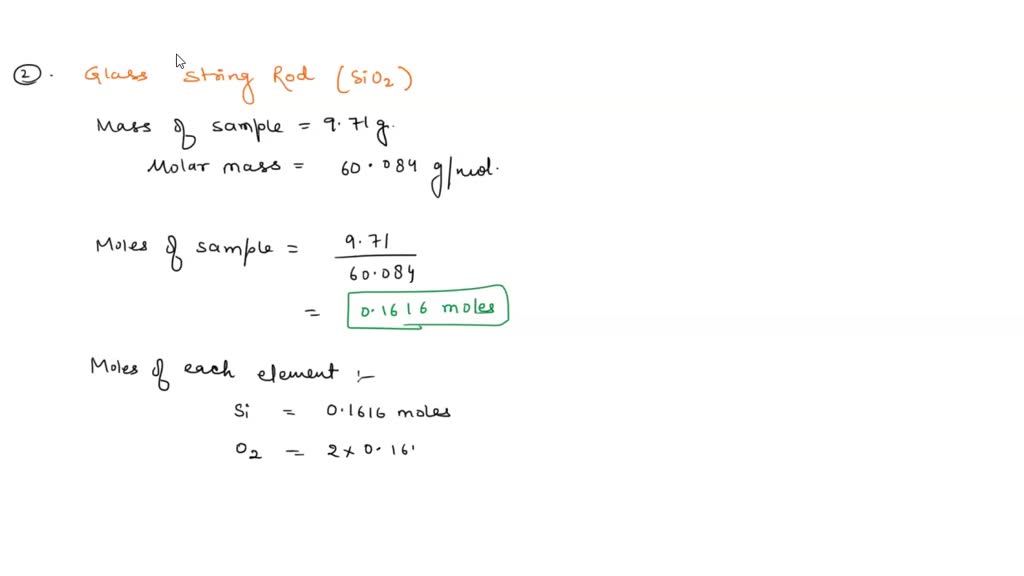 2. Glass string Rod (SiO2)
Mass of sample = 9.71g.
Molar mass = 60.084 g/mol.
Moles of sample = 9.71
60.084
= 0.1616 moles
Moles of each element :-
Si = 0.1616 moles
O2 = 2 x 0.161